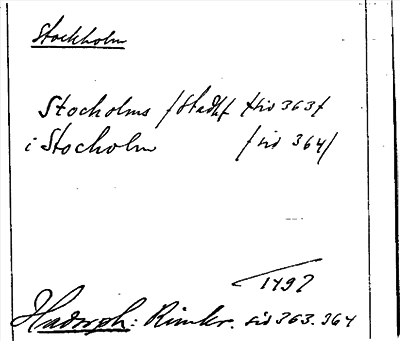 Stockholm
Stocholms /Stadhf /sid 363/
i Stocholm /sid 364/
1497
Hadorph: Rimkr. sid 363. 364